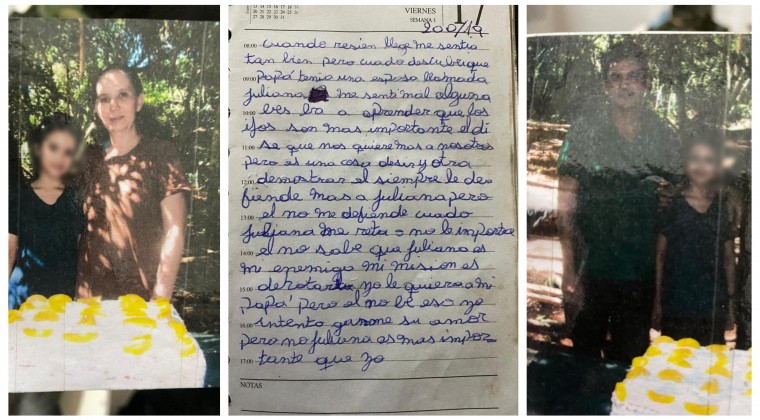 VIERNES
SEMANA 1
200/19
08:00 cuando resien llege me sentia
tan bien pero cuado descubrique
09:00 Papá tenia una esposa llamada
Juliana me senti mal alguna
10:00 bes ba a aprender que los
ijos son mas importante el di
se que nos quiere mas a nosotros
pero es una cosa desir y otra
12:00 demostrar el siempre le de
fiende mas a Juliana pero
13:00 el no me defiende cuado
Juliana me reta o no le importa
14:00 el no sabe que Juliana es
mi enemiga mi mision es
15:00 derotarla no le quiero a mi
Papá pero el no bé eso yo
16:00 intento ganme su amor
pero no Juliana es mas impor
17:00 tante que yo
NOTAS